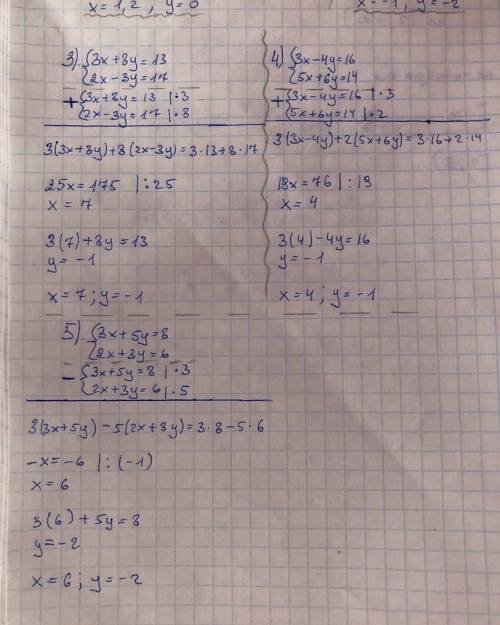 x=1,2 ; y=0
x=-1, y=-2
3) {3x+8y=13
{2x-3y=17
+{3x+8y=13 |·3
{2x-3y=17 |·8
3(3x+8y)+8(2x-3y)=3·13+8·17
25x=175 |:25
x=7
3(7)+8y=13
y=-1
x=7; y=-1
4) {3x-4y=16
{5x+6y=14
+{3x-4y=16 |·3
{5x+6y=14 |·2
3(3x-4y)+2(5x+6y)=3·16+2·14
19x=76 |:19
x=4
3(4)-4y=16
y=-1
x=4; y=-1
5) {3x+5y=8
{2x+3y=6
-{3x+5y=8 |·3
{2x+3y=6 |·5
3(3x+5y)-5(2x+3y)=3·8-5·6
-x=-6 |:(-1)
x=6
3(6)+5y=8
y=-2
x=6; y=-2